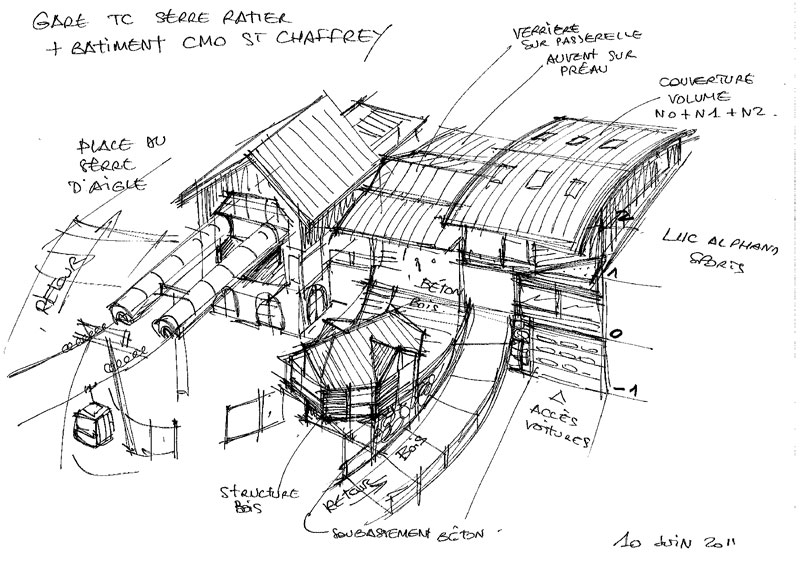 GARE TC SERRE RATIER
+ BATIMENT CMO ST CHAFFREY
VERRIÈRE
SUR PASSERELLE
AUVENT SUR
PRÉAU
COUVERTURE
VOLUME
N0+N1+N2.
PLACE DU
SERRE
D'AIGLE
RETOUR
LUC ALPHAND
SPORTS
2
1
0
-1
BÉTON
BOIS
ACCÈS
VOITURES
BOIS
RETOUR
STRUCTURE
BOIS
SOUBASSEMENT BÉTON.
10 JUIN 2011